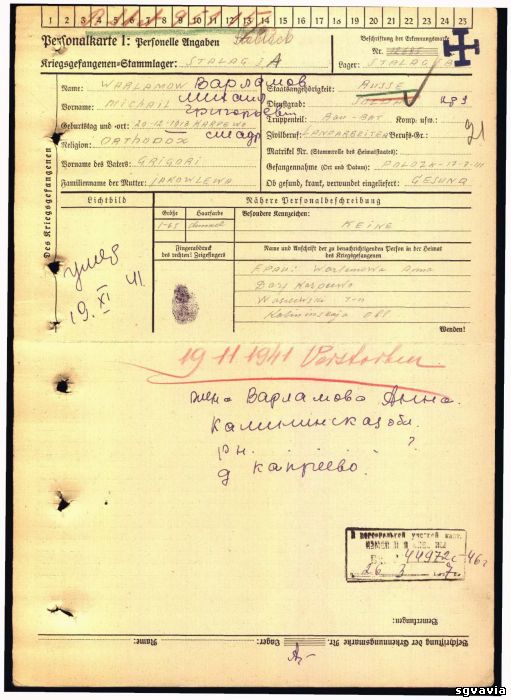 1 2 3 4 5 6 7 8 9 10 11 12 13 14 15 16 17 18 19 20 21 22 23 24 25
Personalkarte I: Personelle Angaben
Beschriftung der Erkennungsmarke
Nr.
Kriegsgefangenen-Stammlager: STALAG 3 A
Lager: STALAG
Des Kriegsgefangenen
Name: WARLAMOW Варламов
Vorname: MICHAIL Михаил
Григорьевич
Geburtstag und -ort: 20-12-1913 KARPEWO
Religion: ORTHODOX
Vorname des Vaters: GRIGORI
Familienname der Mutter: JAKOWLEWA
Staatsangehörigkeit: RUSSE
Dienstgrad:
Truppenteil: BAU-BAT Komp. usw.:
Zivilberuf: LANDARBEITER Berufs-Gr.:
Matrikel Nr. (Stammrolle des Heimatstaates):
Gefangennahme (Ort und Datum):
Ob gesund, krank, verwundet eingeliefert: GESUND
Lichtbild
Nähere Personalbeschreibung
Größe
Haarfarbe
Besondere Kennzeichen:
1-65
dunkel
KEINE
Fingerabdruck
des rechten! Zeigefingers
Name und Anschrift der zu benachrichtigenden Person in der Heimat
des Kriegsgefangenen
Frau: Warlamowa Anna
Dorf Karpewo
Kalininskaja Obl
Wenden!
умер
19. XI 41.
19 11 1941 Verstorben.
жена Варламова Анна.
Калининская обл.
рн. ?
д
44972с-46г
26 3
Bemerkungen:
Beschriftung der Erkennungsmarke Nr. Lager: Name:
sgvavia